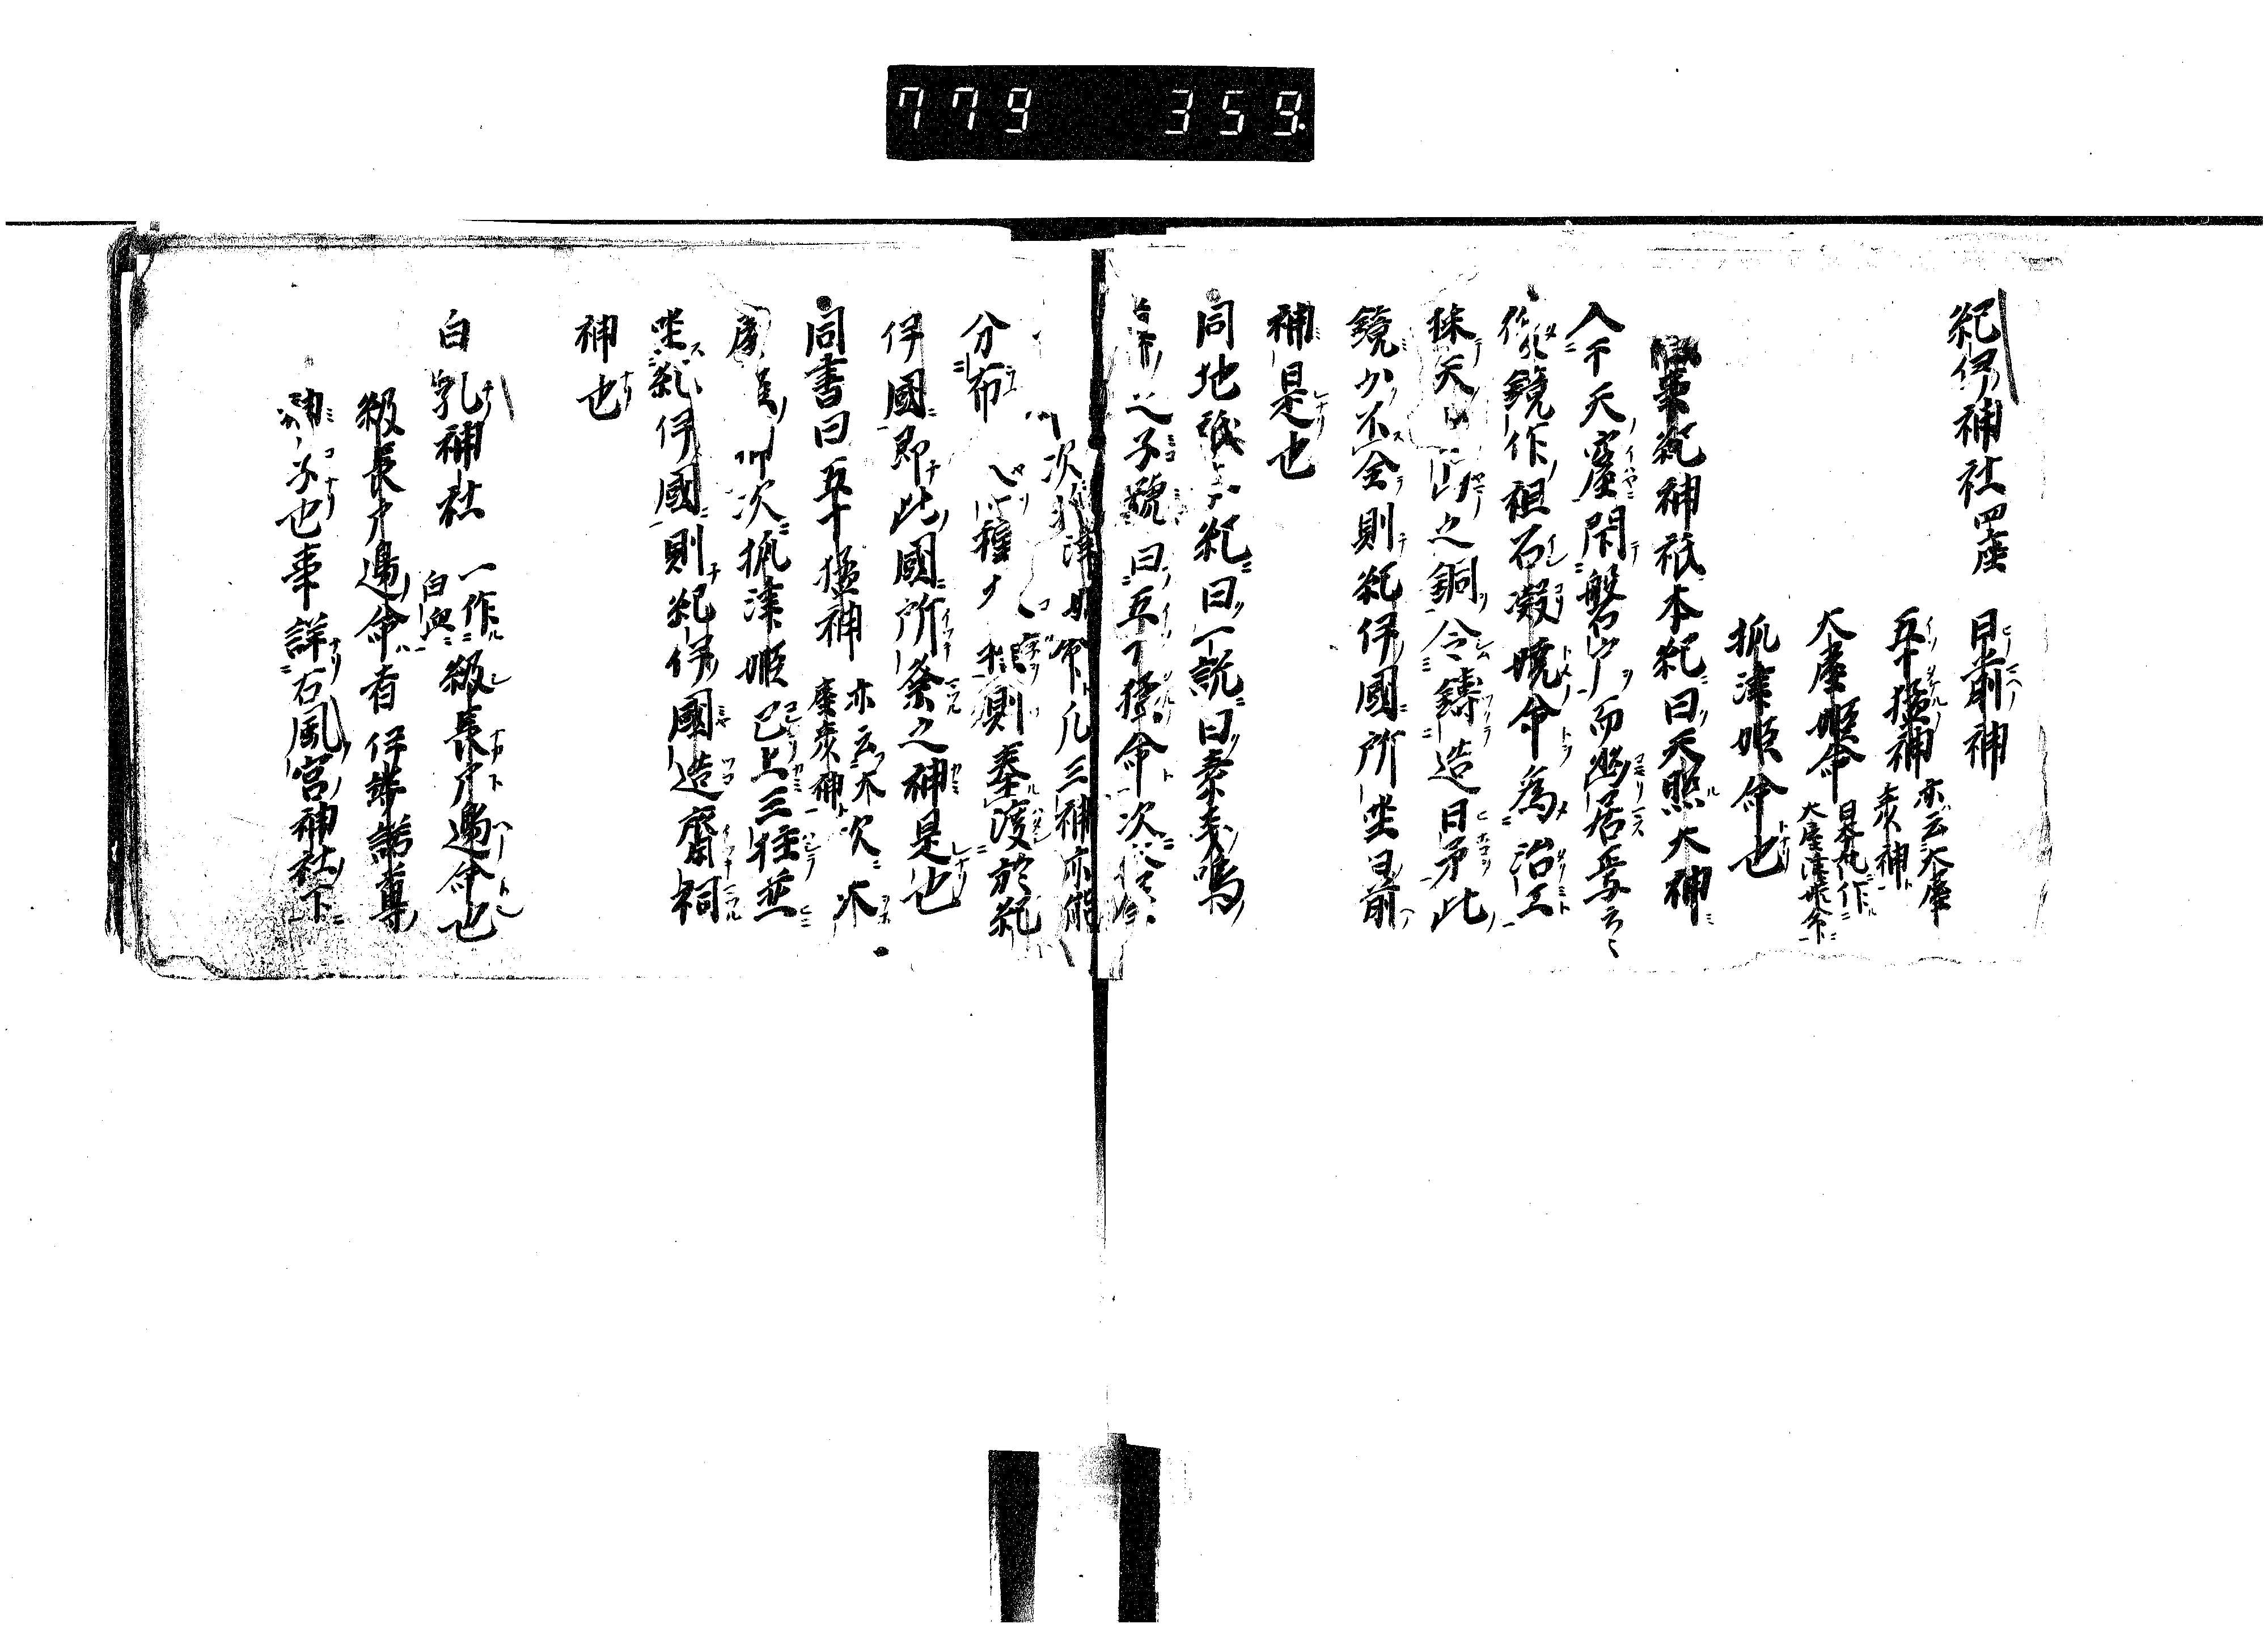 779 359
紀伊神社四座 日前神
五十猛神 亦云大屋
彦神
大屋姫命 日本紀作
大屋津姫命
抓津姫命也
舊事紀神祇本紀曰天照大神
入于天窟閇磐戸而幽居焉云々
鏡作祖石凝姥命為治工
採天山之銅令鑄造日矛此
鏡少不全則紀伊國所坐日前
神是也
同地祇本紀曰一説曰素戔嗚
之子號曰五十猛命次大
次抓津姫命凡三神亦能
分布種則奉渡於紀
伊國即此國所祭之神是也
同書曰五十猛神 亦云大
屋彦神 次大
屋次抓津姫已上三柱並
坐紀伊國則紀伊國造齋祠
神也
白乳神社 一作
白血 級長戸邊命也
級長戸邊命者伊弉諾尊
子也事詳右風宮神社下